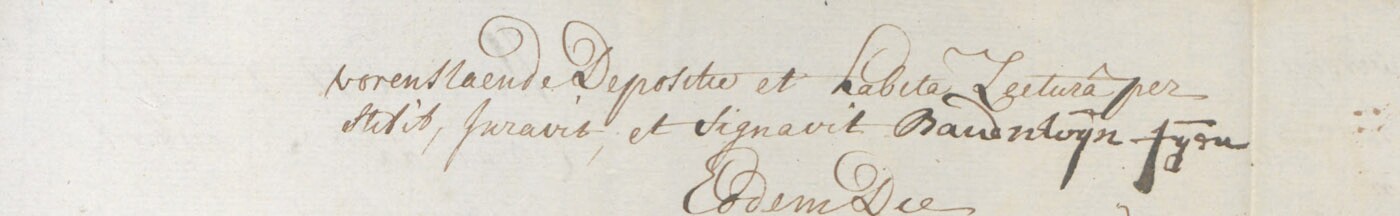 vorenstaende Depositie et habita Lecturâ per
stitit, Juravit, et signavit Baudewÿn
Eodem Die